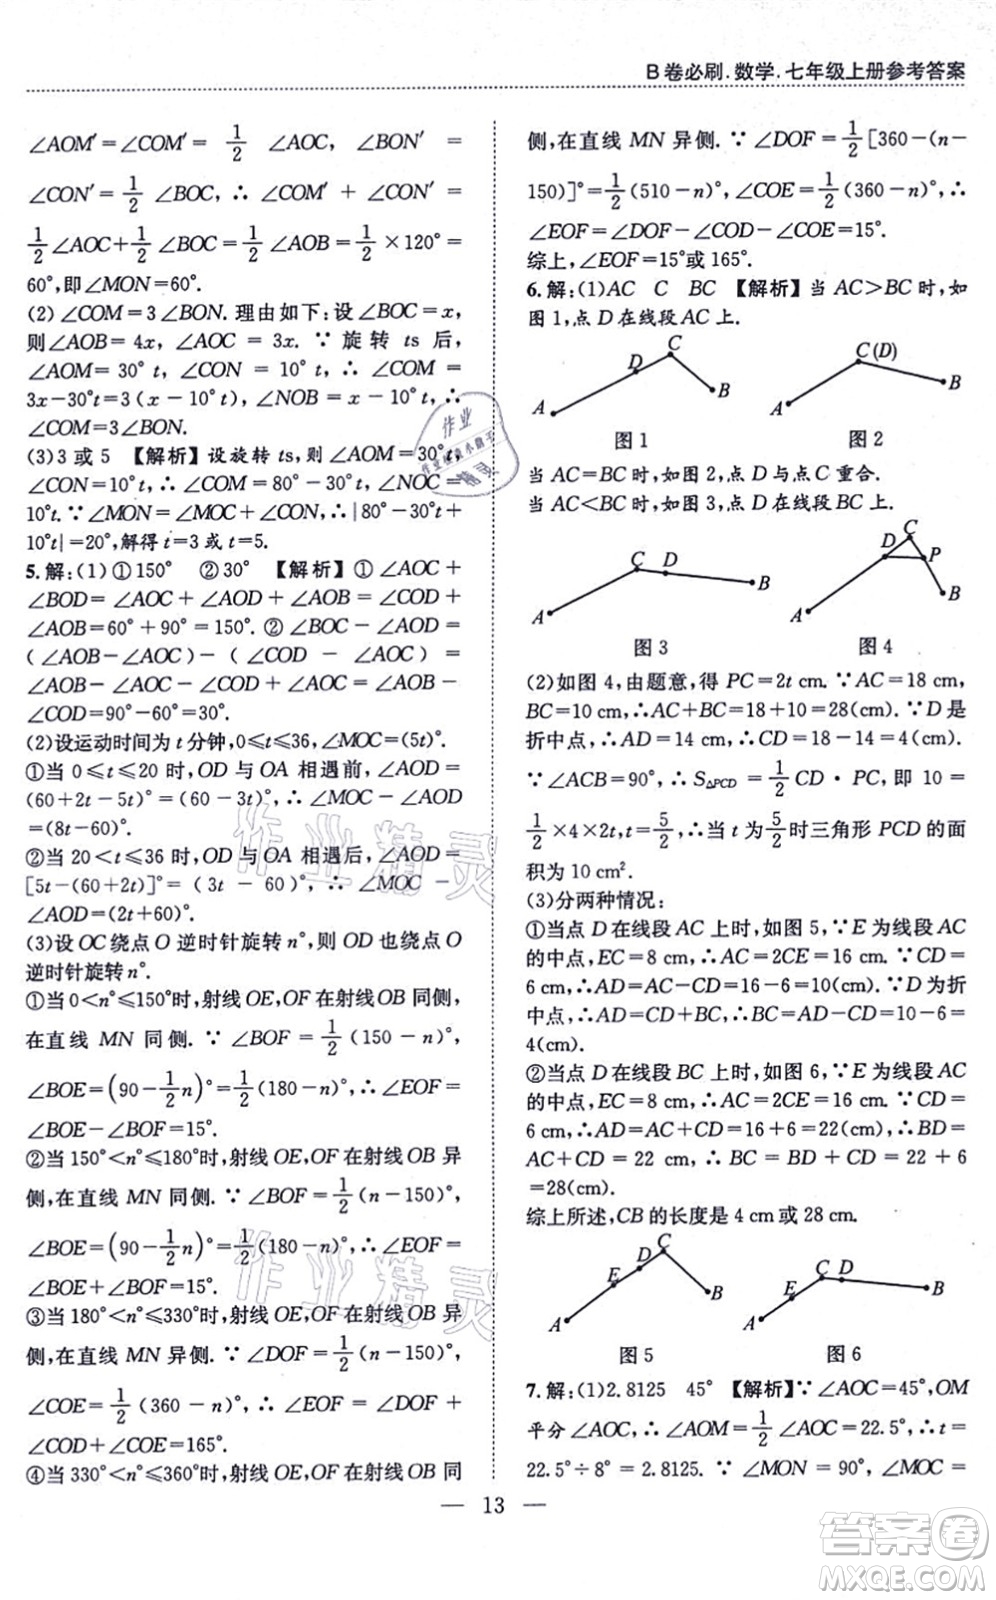 B卷必刷.数学.七年级上册参考答案
∠AOM′=∠COM′=1/2∠AOC, ∠BON′=
∠CON′=1/2∠BOC, ∴∠COM′+∠CON′=
1/2∠AOC+1/2∠BOC=1/2∠AOB=1/2×120°=
60°,即∠MON=60°.
(2)∠COM=3∠BON.理由如下:设∠BOC=x,
则∠AOB=4x,∠AOC=3x.∵旋转ts后,
∠AOM=30°t,∠CON=10°t,∴∠COM=
3x-30°t=3(x-10°t),∠NOB=x-10°t.∴
∠COM=3∠BON.
(3)3或5 【解析】设旋转ts,则∠AOM=30°t,
∠CON=10°t,∴∠COM=80°-30°t,∠NOC=
10°t.∵∠MON=∠MOC+∠CON,∴|80°-30°t+
10°t|=20°,解得t=3或t=5.
5.解:(1)①150° ②30° 【解析】①∠AOC+
∠BOD=∠AOC+∠AOD+∠AOB=∠COD+
∠AOB=60°+90°=150°.②∠BOC-∠AOD=
(∠AOB-∠AOC)-(∠COD-∠AOC)=
∠AOB-∠AOC-∠COD+∠AOC=∠AOB-
∠COD=90°-60°=30°.
(2)设运动时间为t分钟,0≤t≤36,∠MOC=(5t)°.
①当0≤t≤20时,OD与OA相遇前,∠AOD=
(60+2t-5t)°=(60-3t)°,∴∠MOC-∠AOD
=(8t-60)°.
②当20<t≤36时,OD与OA相遇后,∠AOD=
[5t-(60+2t)]°=(3t-60)°,∴∠MOC-
∠AOD=(2t+60)°.
(3)设OC绕点O逆时针旋转n°,则OD也绕点O
逆时针旋转n°.
①当0<n°≤150°时,射线OE,OF在射线OB同侧,
在直线MN同侧.∵∠BOF=1/2(150-n)°,
∠BOE=(90-1/2n)°=1/2(180-n)°,∴∠EOF=
∠BOE-∠BOF=15°.
②当150°<n°≤180°时,射线OE,OF在射线OB异
侧,在直线MN同侧.∵∠BOF=1/2(n-150)°,
∠BOE=(90-1/2n)°=1/2(180-n)°,∴∠EOF=
∠BOE+∠BOF=15°.
③当180°<n°≤330°时,射线OE,OF在射线OB异
侧,在直线MN异侧.∵∠DOF=1/2(n-150)°,
∠COE=1/2(360-n)°,∴∠EOF=∠DOF+
∠COD+∠COE=165°.
④当330°<n°≤360°时,射线OE,OF在射线OB同
侧,在直线MN异侧.∵∠DOF=1/2[360-(n-
150)]°=1/2(510-n)°,∠COE=1/2(360-n)°,∴
∠EOF=∠DOF-∠COD-∠COE=15°.
综上,∠EOF=15°或165°.
6.解:(1)AC C BC 【解析】当AC>BC时,如
图1,点D在线段AC上.
A D C B
A C(D) B
图1 图2
当AC=BC时,如图2,点D与点C重合.
当AC<BC时,如图3,点D在线段BC上.
A C D B
A D C P B
图3 图4
(2)如图4,由题意,得PC=2t cm.∵AC=18 cm,
BC=10 cm,∴AC+BC=18+10=28(cm).∵D是
折中点,∴AD=14 cm,∴CD=18-14=4(cm).
∵∠ACB=90°,∴S△PCD=1/2CD·PC,即10=
1/2×4×2t,t=5/2,∴当t为5/2时三角形PCD的面
积为10 cm².
(3)分两种情况:
①当点D在线段AC上时,如图5,∵E为线段AC
的中点,EC=8 cm,∴AC=2CE=16 cm.∵CD=
6 cm,∴AD=AC-CD=16-6=10(cm).∵D为折
中点,∴AD=CD+BC,∴BC=AD-CD=10-6=
4(cm).
②当点D在线段BC上时,如图6,∵E为线段AC
的中点,EC=8 cm,∴AC=2CE=16 cm.∵CD=
6 cm,∴AC+CD=16+6=22(cm),∴BD=
AC+CD=22 cm,∴BC=BD+CD=22+6
=28(cm).
综上所述,CB的长度是4 cm或28 cm.
A E D C B
A E C D B
图5 图6
7.解:(1)2.8125 45° 【解析】∵∠AOC=45°,OM
平分∠AOC,∴∠AOM=1/2∠AOC=22.5°,∴t=
22.5°÷8°=2.8125.∵∠MON=90°,∠AOC=
— 13 —
作业精灵
作业精灵
答案圈
MXQE.COM